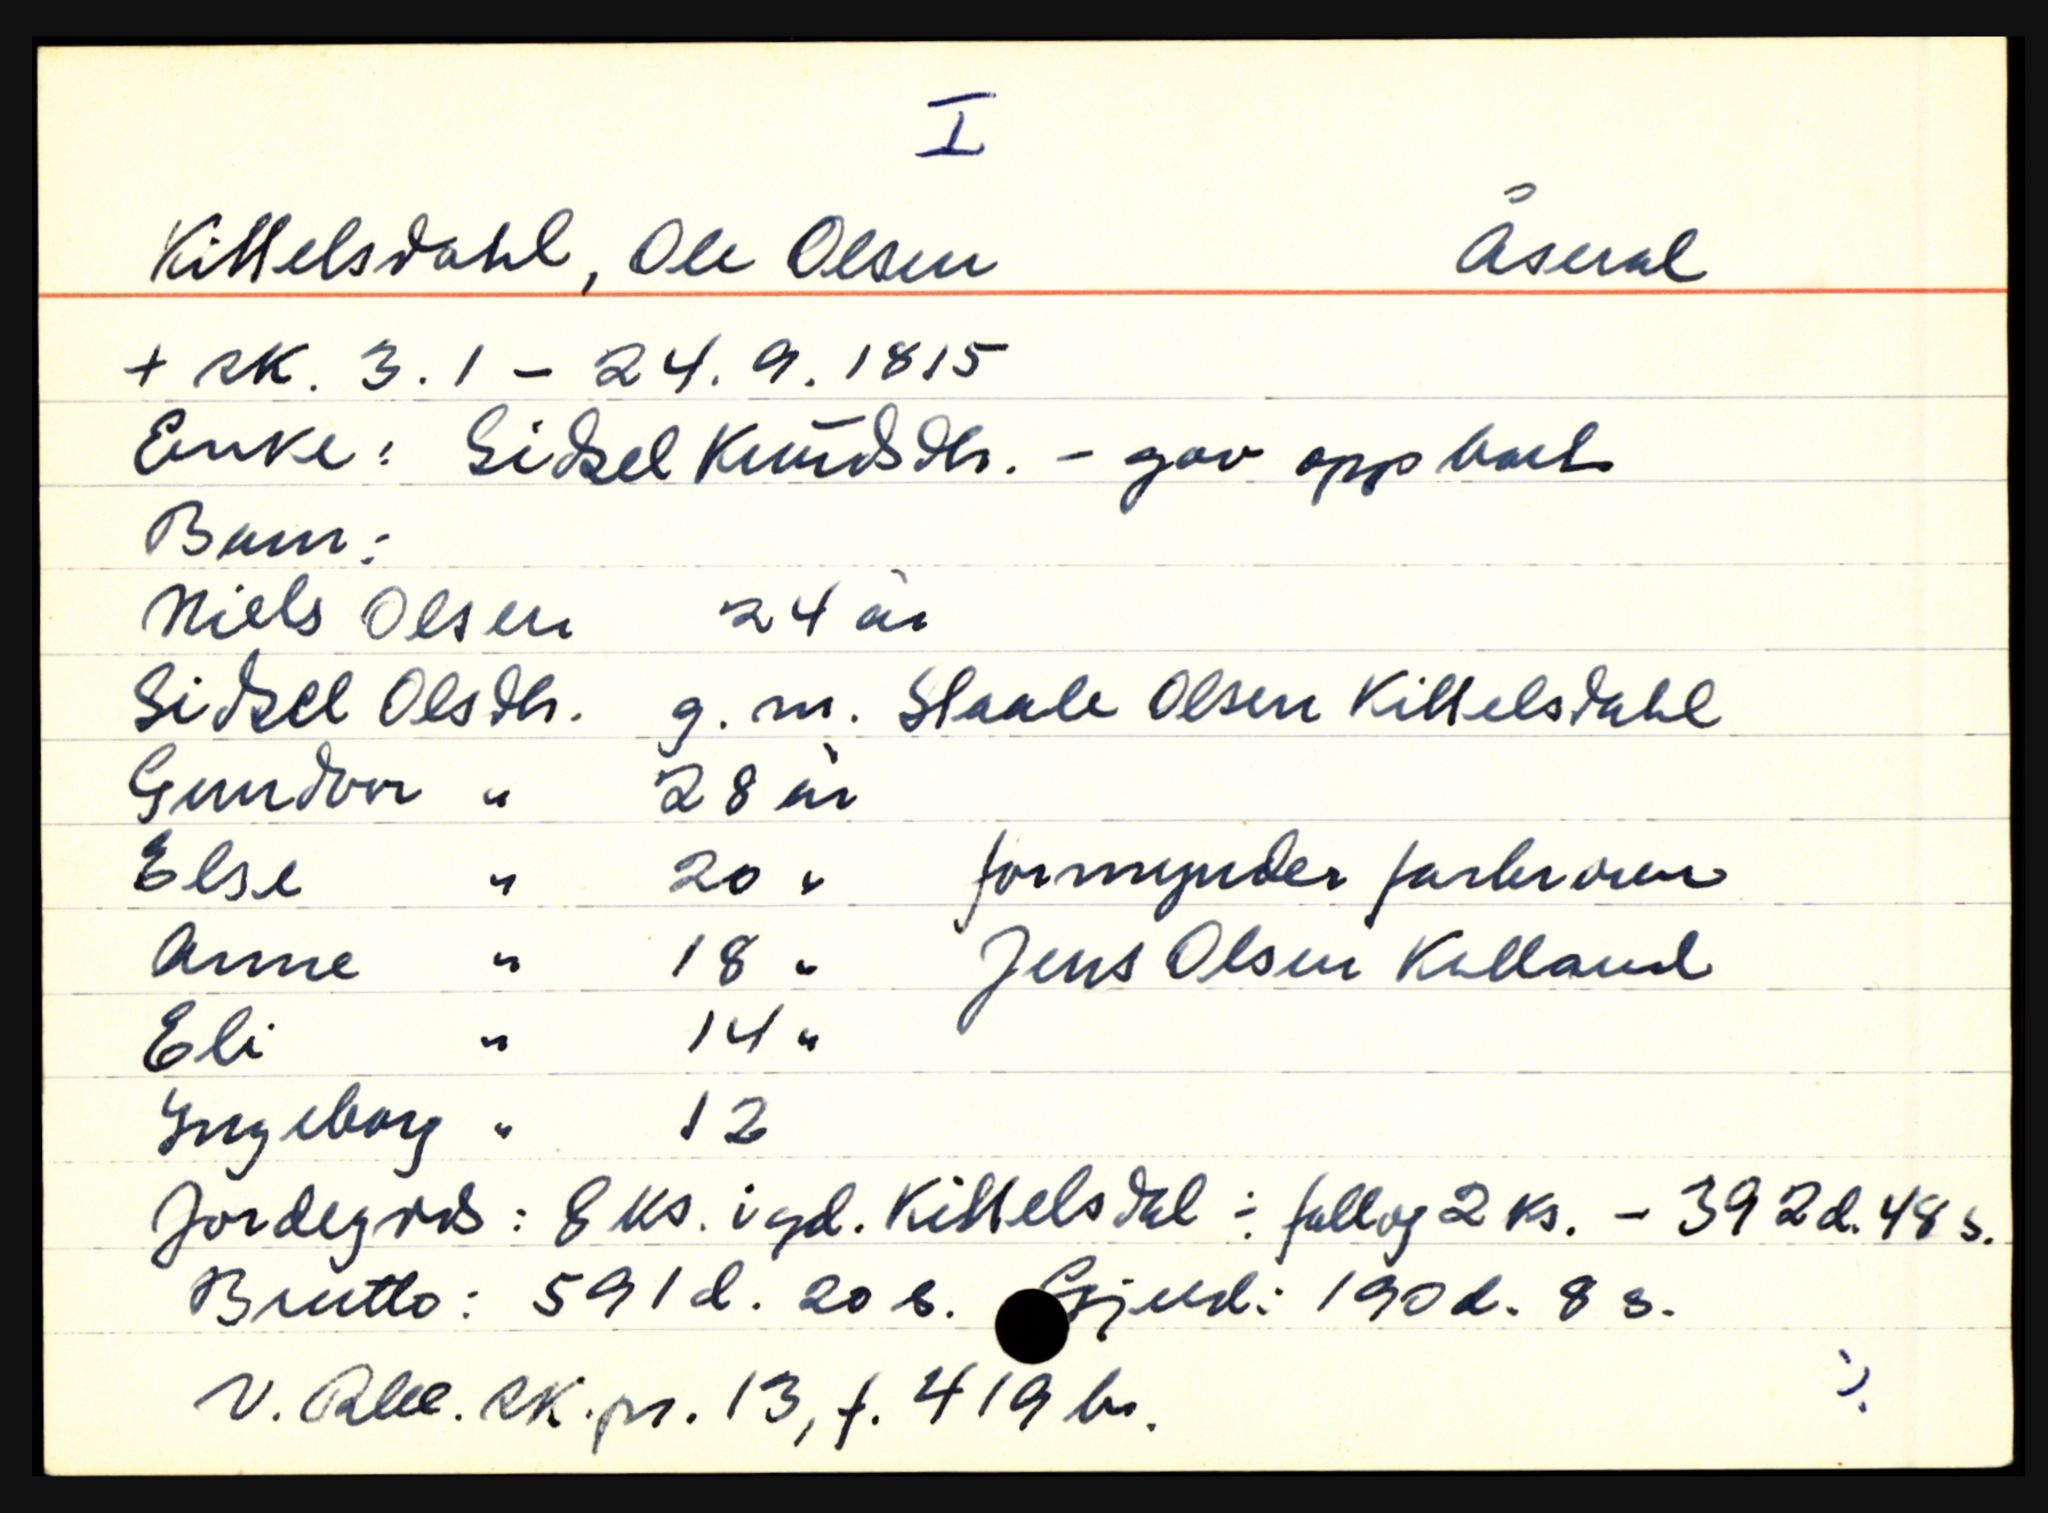 I
Kittelsdahl, Ole Olsen Åseral
+ sk. 3.1 - 24.9.1815
Enke: Sidsel Knudsdtr. - gav opp boet
Barn:
Niels Olsen 24 år
Sidsel Olsdtr. g. m. Staale Olsen Kittelsdahl
Gundvor " 28 år
Else " 20 " formynder farbroren
Anne " 18 " Jens Olsen Kalland
Eli " 14 "
Yngeborg " 12
Jordegods: 8 ks. i gd. Kittelsdal ÷ fallog 2 ks. - 392 d. 48 s.
Brutto: 591 d. 20 s. Gjeld: 190 d. 8 s.
V. Råb. sk.pr. 13, f. 419 b.